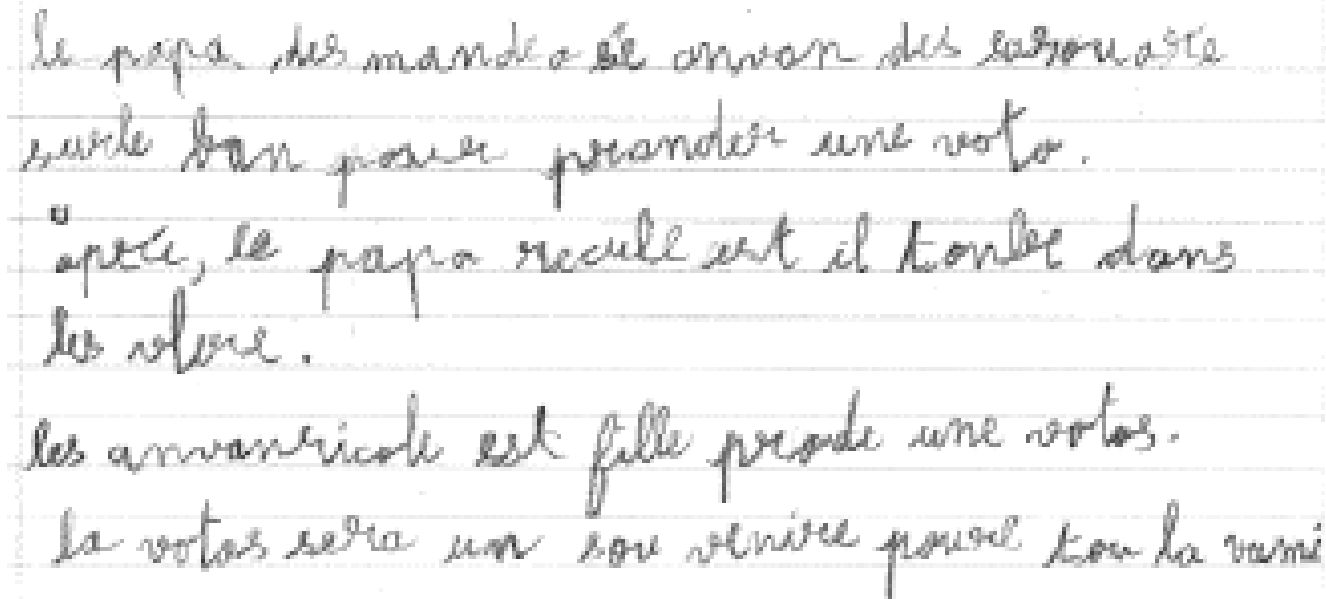 le papa des mande a sé anvan des sasouaste
surle ban pouer prander une voto.
aprée, le papa recule est il tonbe dans
les vlere.
les anvansricole est fille prade une votos.
la votos sera un sou venire poure tou la vami